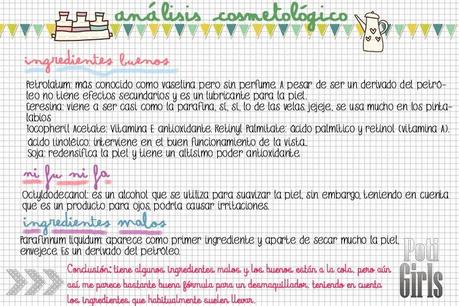 análisis cosmetológico
ingredientes buenos
Petrolatum: más conocido como vaselina pero sin perfume. A pesar de ser un derivado del petró-
leo no tiene efectos secundarios y es un lubricante para la piel.
Ceresina: viene a ser casi como la parafina, sí, sí, lo de las velas, jejeje, se usa mucho en los pinta-
labios
Tocopheril Acetate: Vitamina E antioxidante. Retinyl Palmitate: ácido palmítico y retinol (vitamina A).
ácido linoléico: interviene en el buen funcionamiento de la vista.
Soja: redensifica la piel y tiene un altísimo poder antioxidante.
ni fu ni fa
Octyldodecanol: es un alcohol que se utiliza para suavizar la piel, sin embargo, teniendo en cuenta
que es un producto para ojos, podría causar irritaciones.
ingredientes malos
Paraffinum liquidum: aparece como primer ingrediente y aparte de secar mucho la piel,
envejece. Es un derivado del petróleo.
Conclusión: tiene algunos ingredientes malos y los buenos están a la cola, pero aún
así me parece bastante buena fórmula para un desmaquillador, teniendo en cuenta
los ingredientes que habitualmente suelen llevar.
Poti
Girls